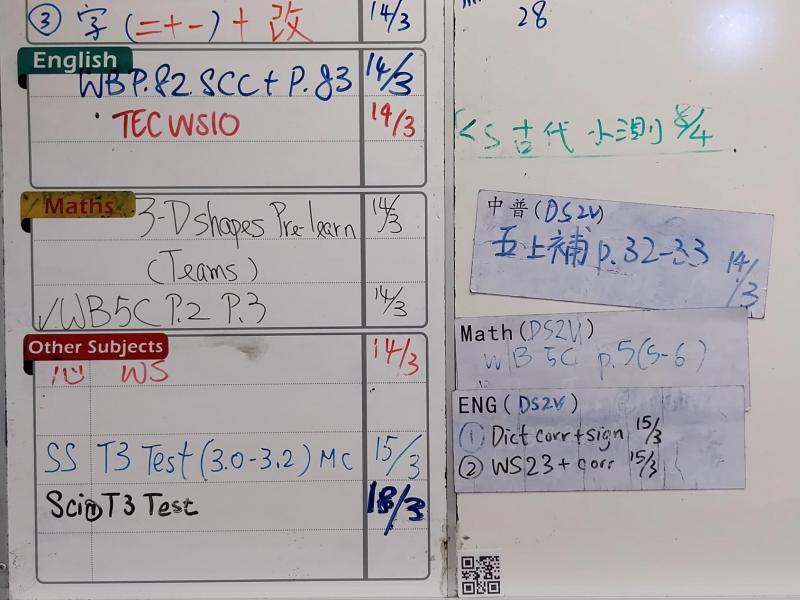 ③ 字 (二十一) + 改 14/3
English
WB P.82 SCC + P.83 14/3
TEC WS10 14/3
Maths
3-D shapes Pre-learn 14/3
(Teams)
✓WB5C P.2 P.3 14/3
Other Subjects
心 WS 14/3
SS T3 Test (3.0-3.2) MC 15/3
Sci① T3 Test 18/3
28
S 古代 小測 8/4
中普 (DS2V)
五上補 p.32-33 14/3
Math (DS2V)
WB 5C p.5 (5-6)
ENG (DS2V)
① Dict corr+sign 15/3
② WS23 + corr 15/3